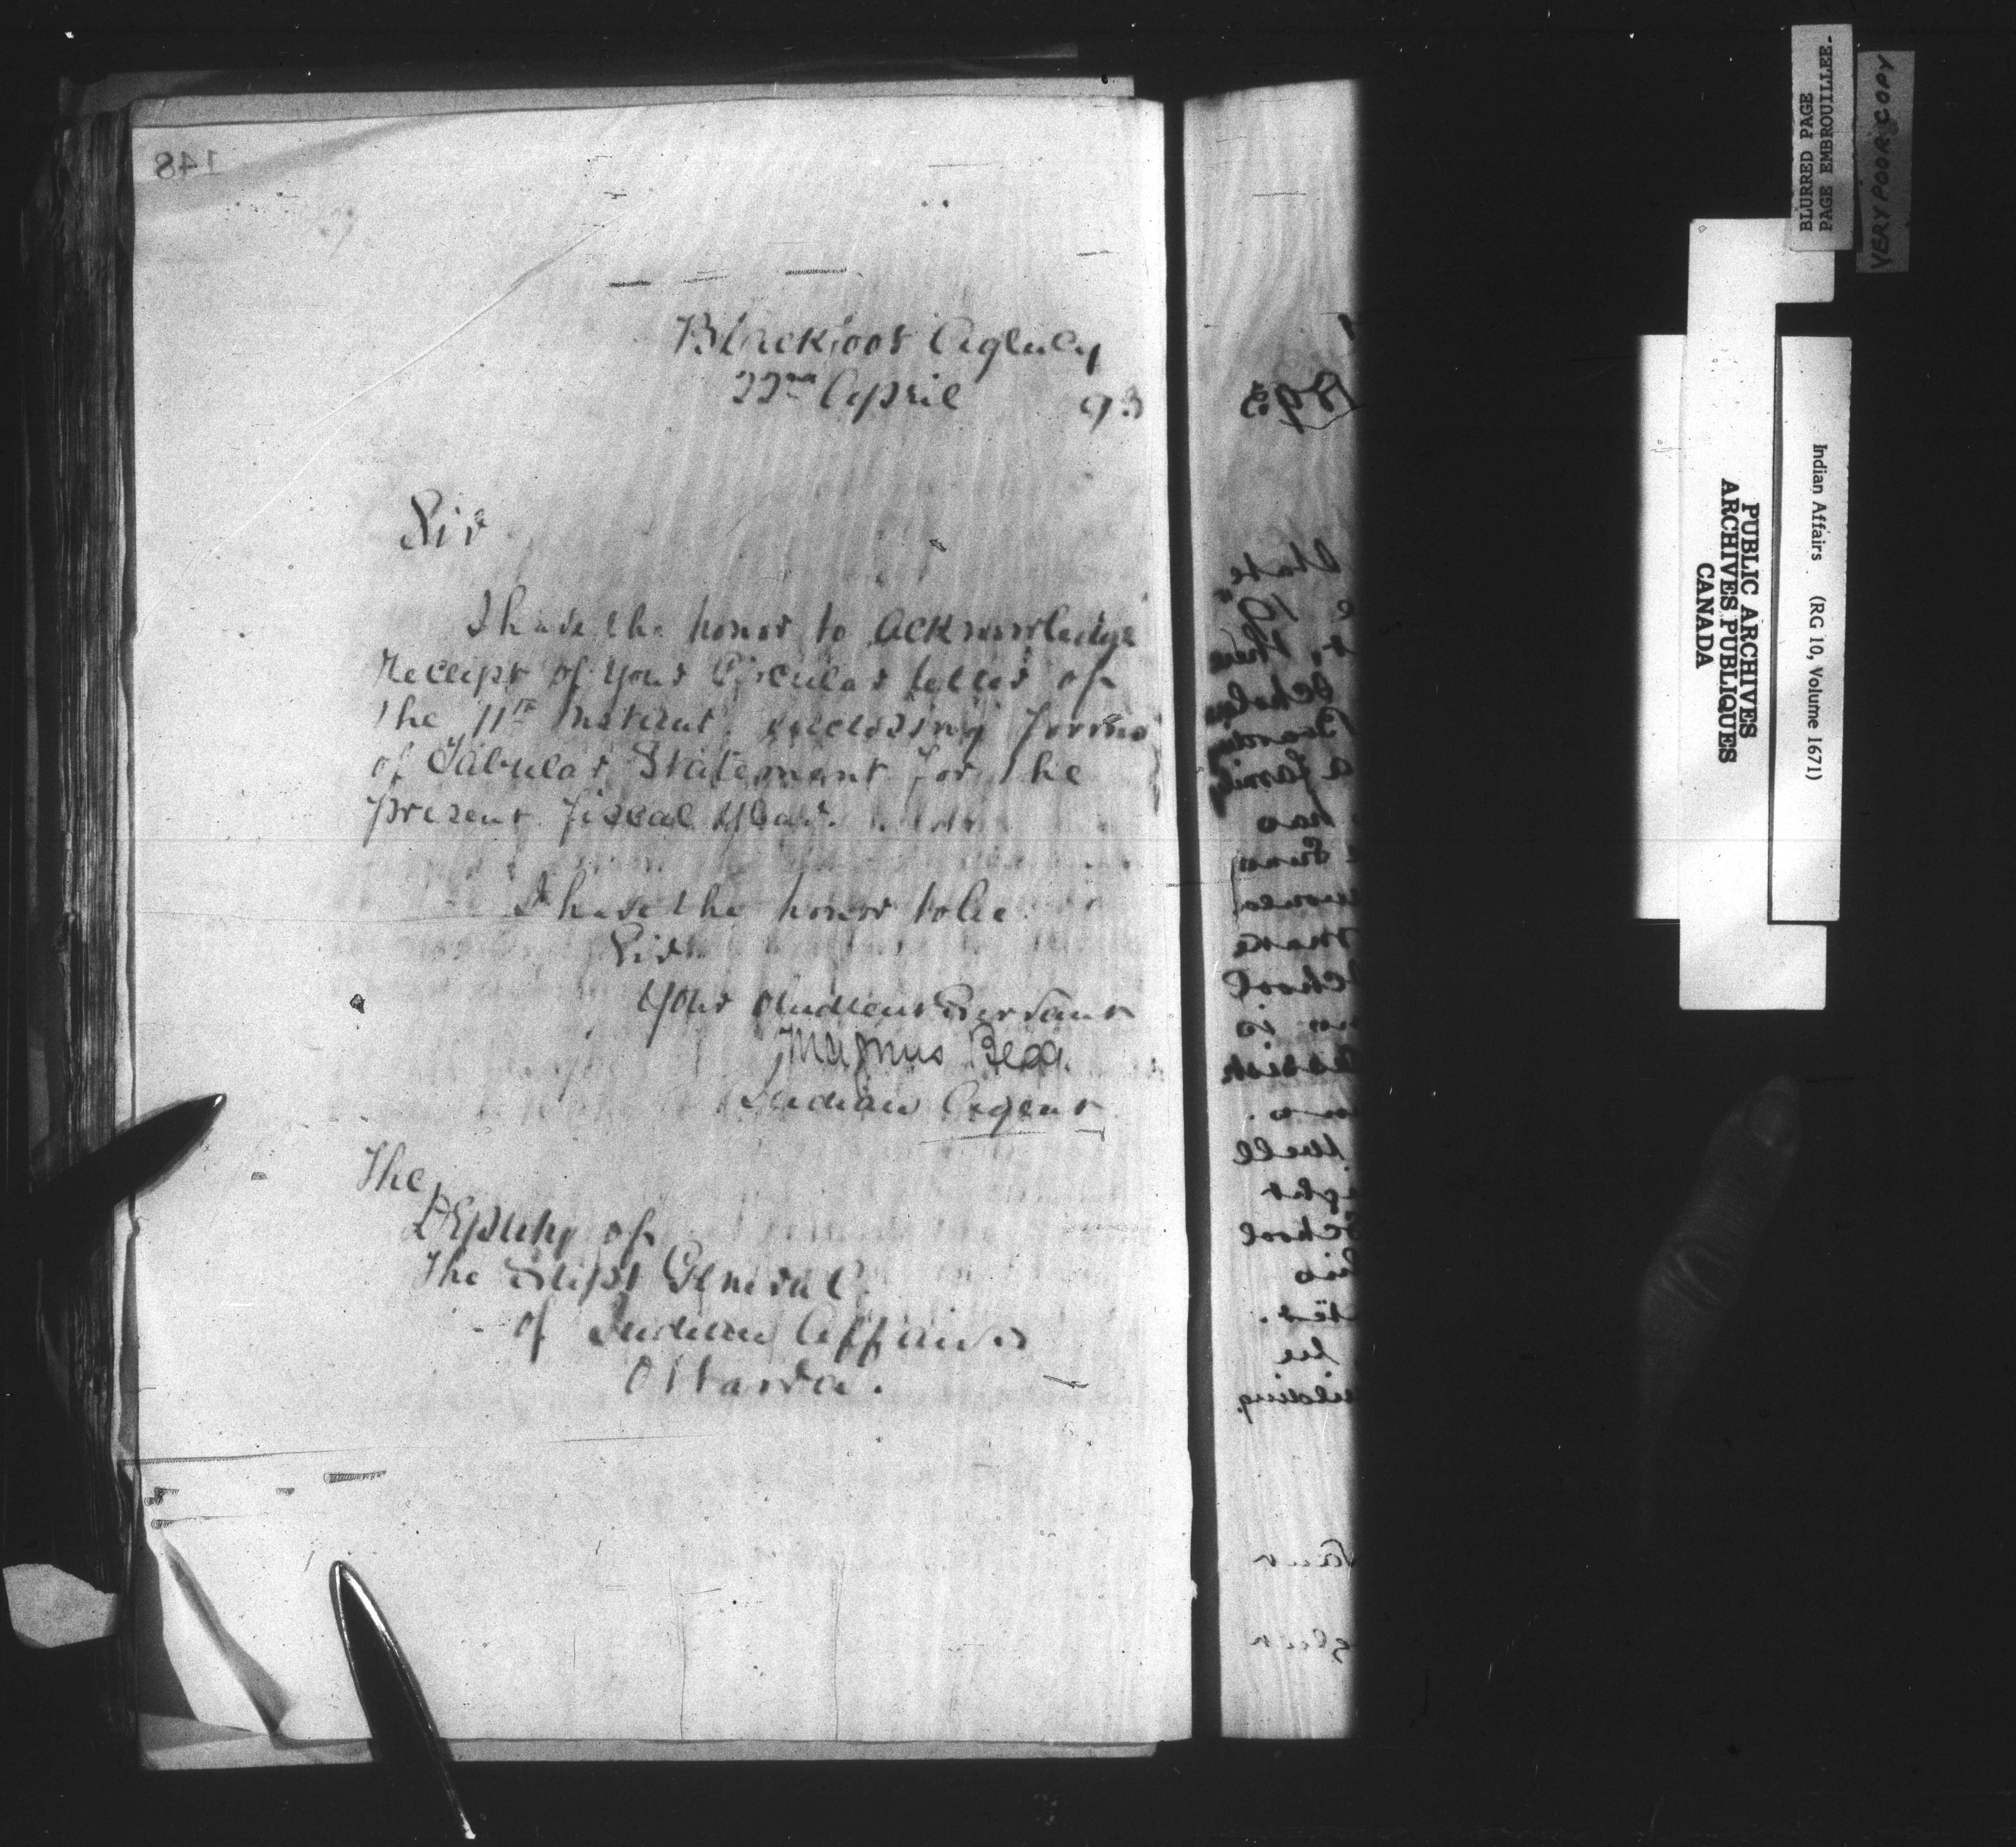 148
Blackfoot Agency
22nd April 93
Sir
I have the honor to acknowledge
receipt of your Circular letter of
the 11th Instant, enclosing forms
of Tabular Statement for the
present fiscal year.
I have the honor to be
Sir
Your Obedient Servant
Magnus Begg.
Indian Agent
The
Deputy of
The Supt General
of Indian Affairs
Ottawa.
1893
State
then
Boarding
a family
has
make
School
is
well
School
his
be
BLURRED PAGE
PAGE EMBROUILLEE.
VERY POOR COPY
PUBLIC ARCHIVES
ARCHIVES PUBLIQUES
CANADA
Indian Affairs (RG 10, Volume 1671)